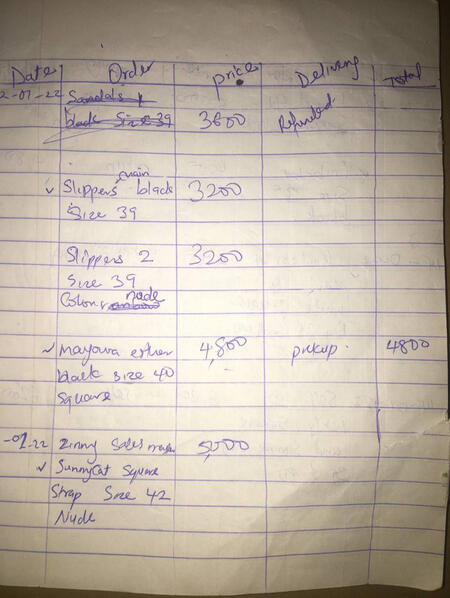 Date Order Price Delivery Total
2-01-22 Sandals 1
black Size 39 3600 Refunded
chain
Slippers black 3200
Size 39
Slippers 2 3200
Size 39
nude
Colour
✓ mayowa esther 4,800 pickup. 4800
black size 40
Square
-01-22 Zinny Sales 5,000
✓ SunnyCat Square
Strap Size 42
Nude